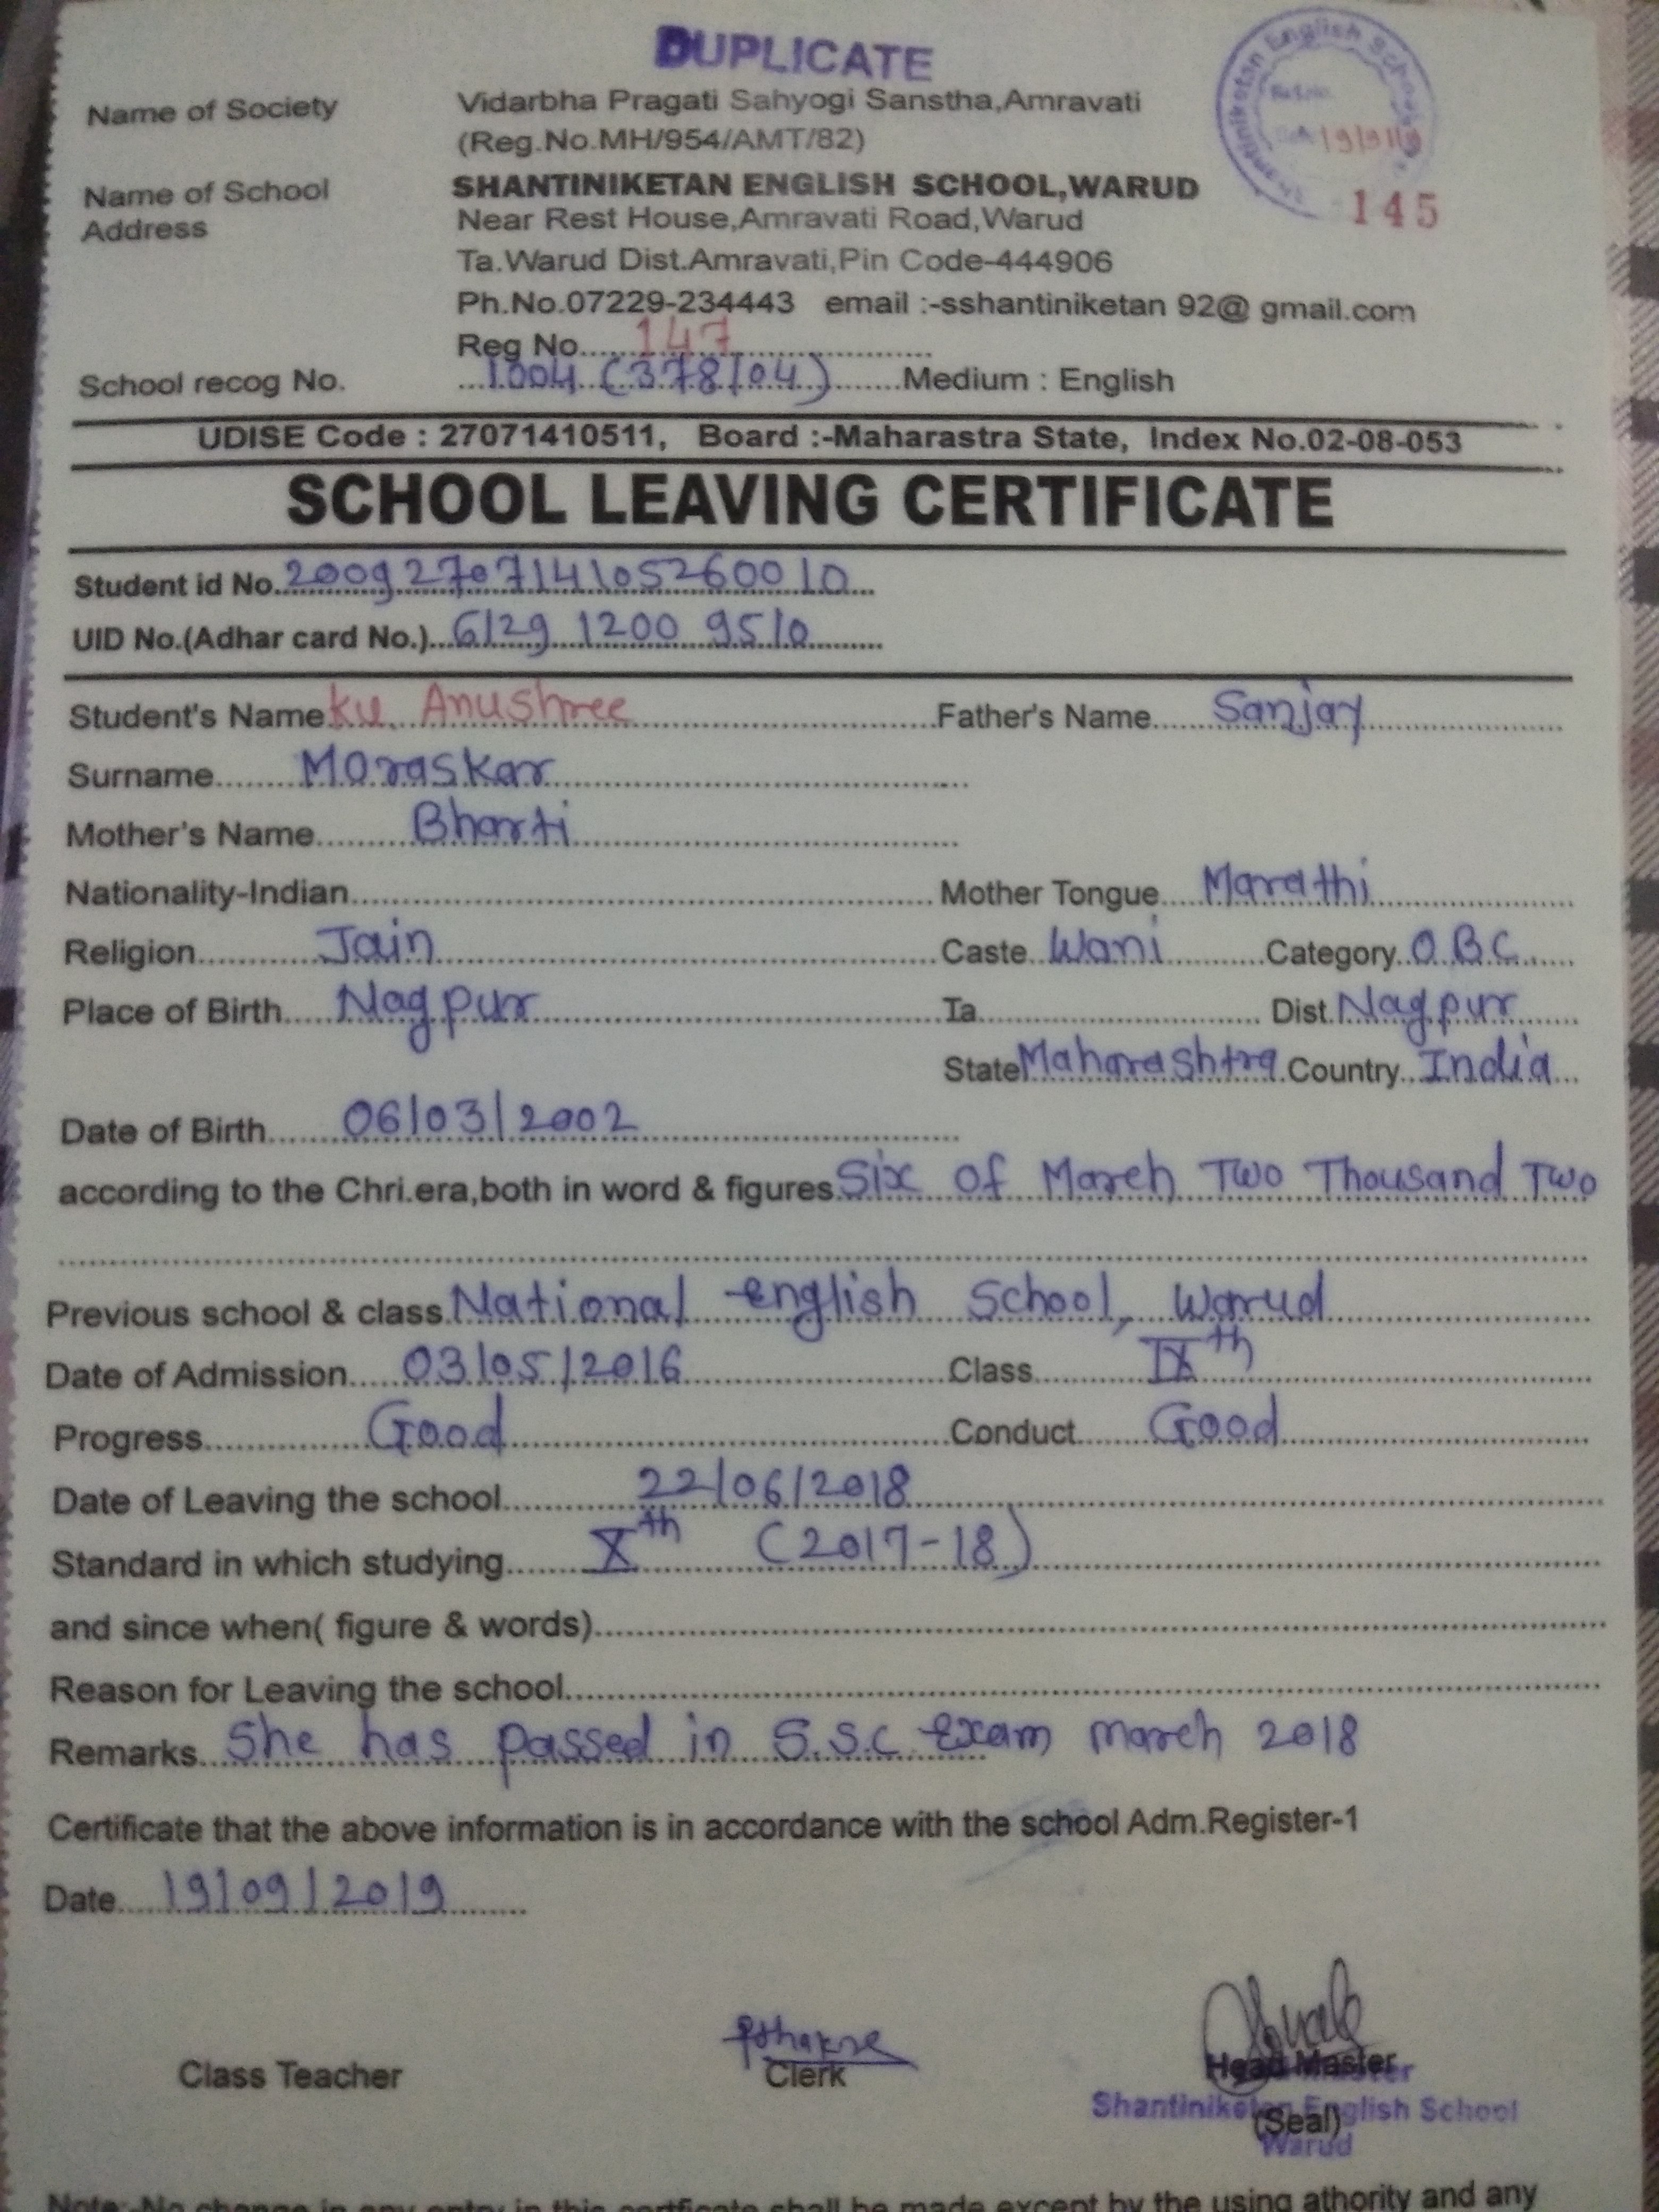 DUPLICATE
Shantiniketan English School
Name of Society Vidarbha Pragati Sahyogi Sanstha,Amravati
(Reg.No.MH/954/AMT/82)
19/9/19
Name of School SHANTINIKETAN ENGLISH SCHOOL,WARUD
145
Address Near Rest House,Amravati Road,Warud
Ta.Warud Dist.Amravati,Pin Code-444906
Ph.No.07229-234443 email :-sshantiniketan 92@ gmail.com
Reg No. 147
School recog No. 1004 (378/04) Medium : English
UDISE Code : 27071410511, Board :-Maharastra State, Index No.02-08-053
SCHOOL LEAVING CERTIFICATE
Student id No. 2009270714105260010
UID No.(Adhar card No.) 6129 1200 9510
Student's Name Ku. Anushree Father's Name Sanjay
Surname Moraskar
Mother's Name Bharti
Nationality-Indian Mother Tongue Marathi
Religion Jain Caste Wani Category O.B.C.
Place of Birth Nagpur Ta. Dist. Nagpur
State Maharashtra Country India
Date of Birth 06/03/2002
according to the Chri.era,both in word & figures Six of March Two Thousand Two
Previous school & class National English School, Warud
Date of Admission 03/05/2016 Class IXth
Progress Good Conduct Good
Date of Leaving the school 22/06/2018
Standard in which studying Xth (2017-18)
and since when( figure & words)
Reason for Leaving the school
Remarks She has passed in S.S.C Exam March 2018
Certificate that the above information is in accordance with the school Adm.Register-1
Date 19/09/2019
Class Teacher Clerk Head Master
Shantiniketan English School
(Seal)
Warud
Note:-No change in any entry in this certficate shall be made except by the using athority and any